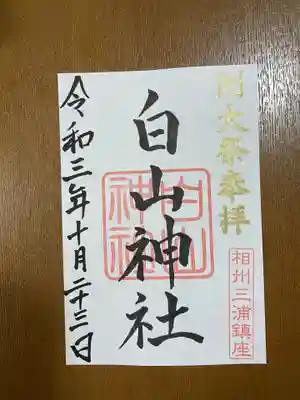 例大祭奉拝
相州三浦鎮座
白山神社
白山神社
令和三年十月二十三日